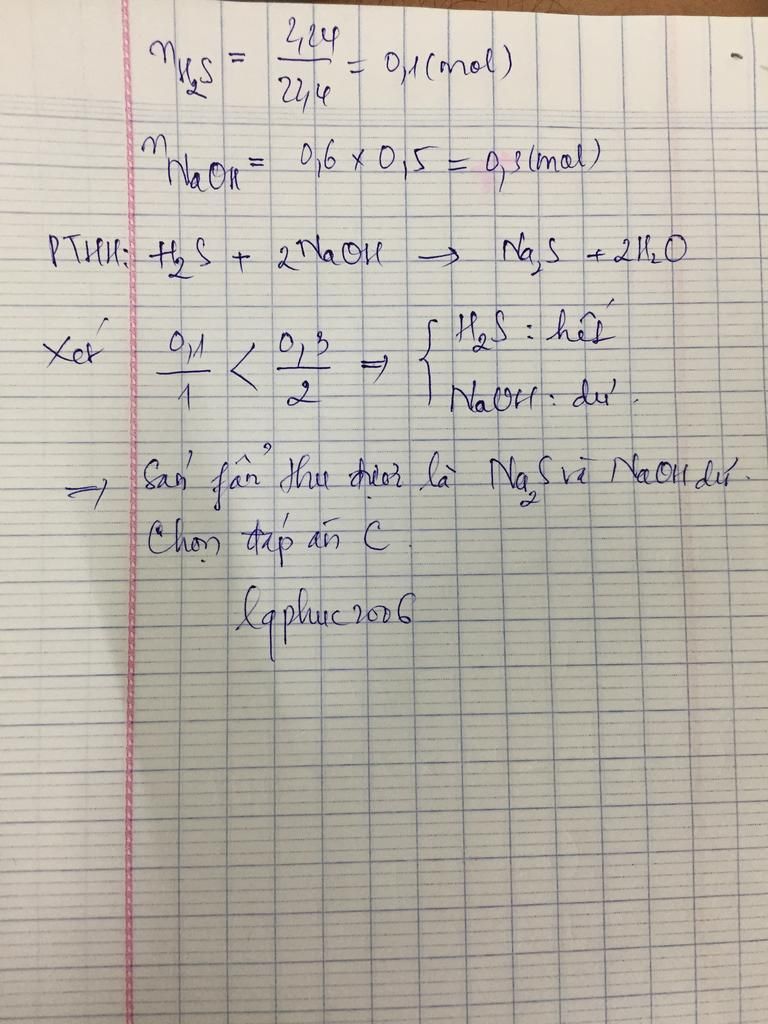 nH₂S = 2,24/22,4 = 0,1 (mol)
nNaOH = 0,6 x 0,5 = 0,3 (mol)
PTHH: H₂S + 2NaOH → Na₂S + 2H₂O
Xét 0,1/1 < 0,3/2 ⇒ { H₂S : hết
NaOH : dư.
⇒ Sản fẩn thu được là Na₂S và NaOH dư.
Chọn đáp án C.
lqphuc2006